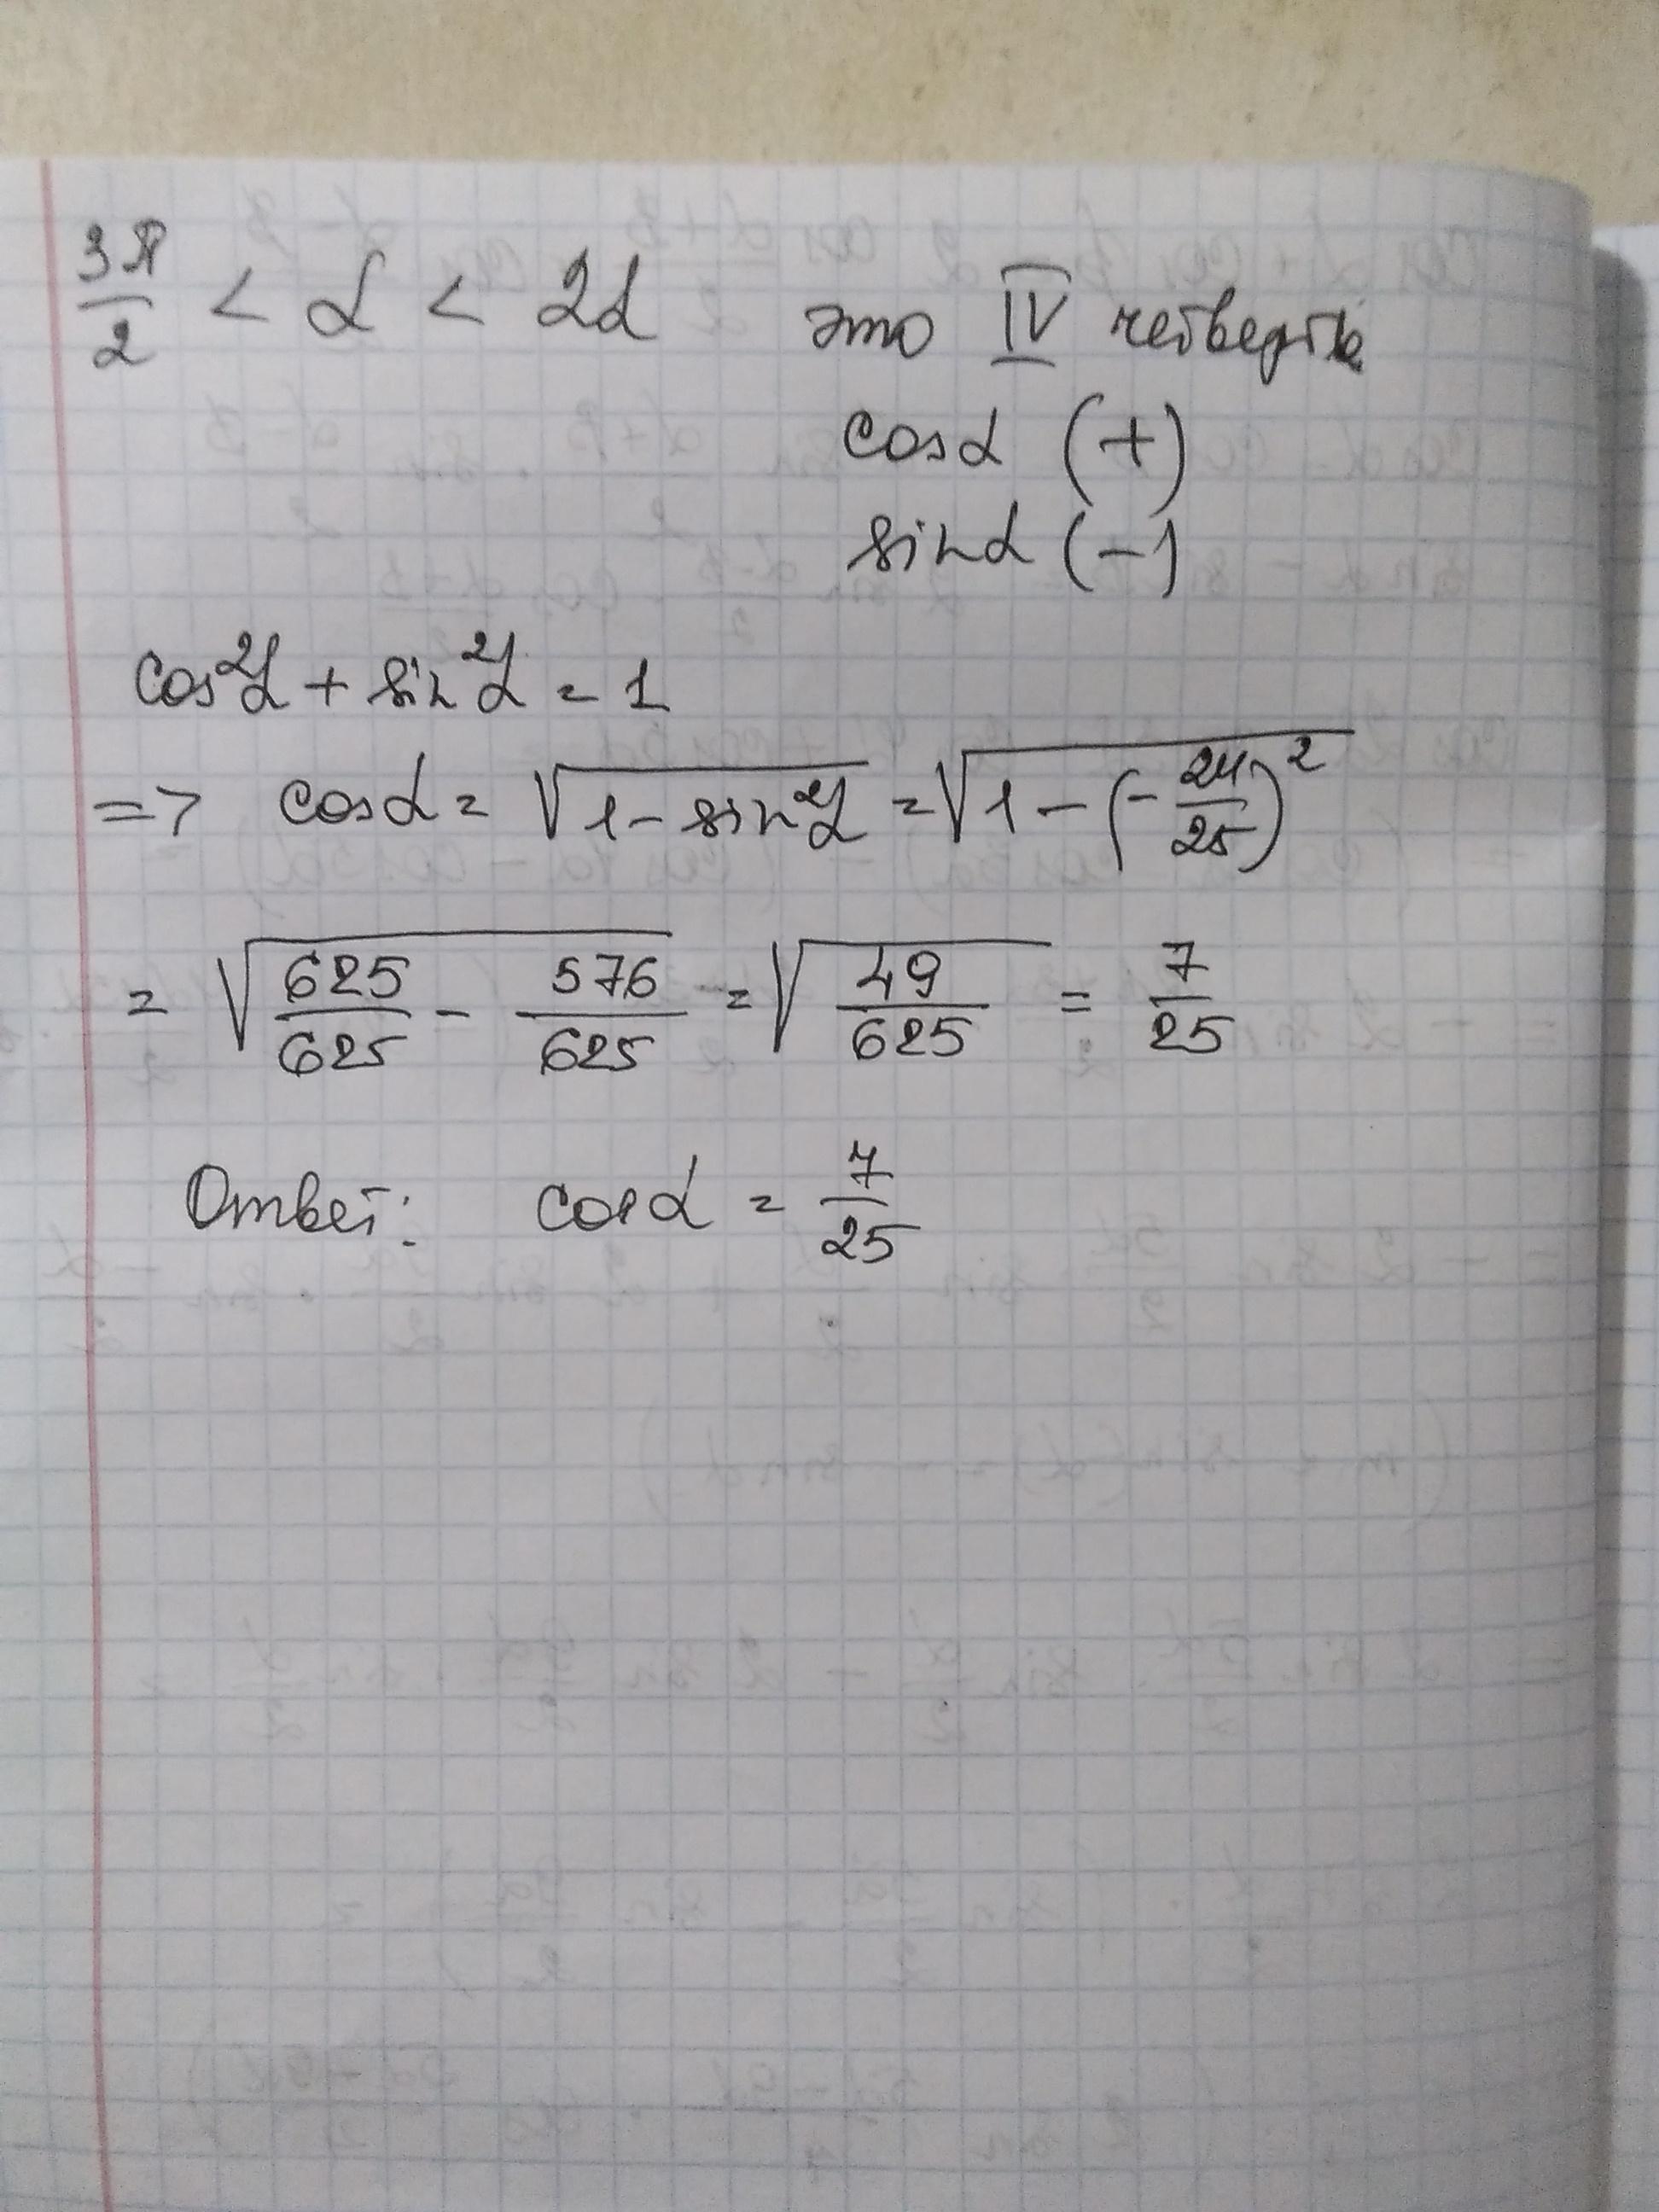 3π/2 < α < 2α это IV четверть
cosα (+)
sinα (-)
cos²α + sin²α = 1
=> cosα = √(1 - sin²α) = √(1 - (-24/25)²)
= √(625/625 - 576/625) = √(49/625) = 7/25
Ответ: cosα = 7/25